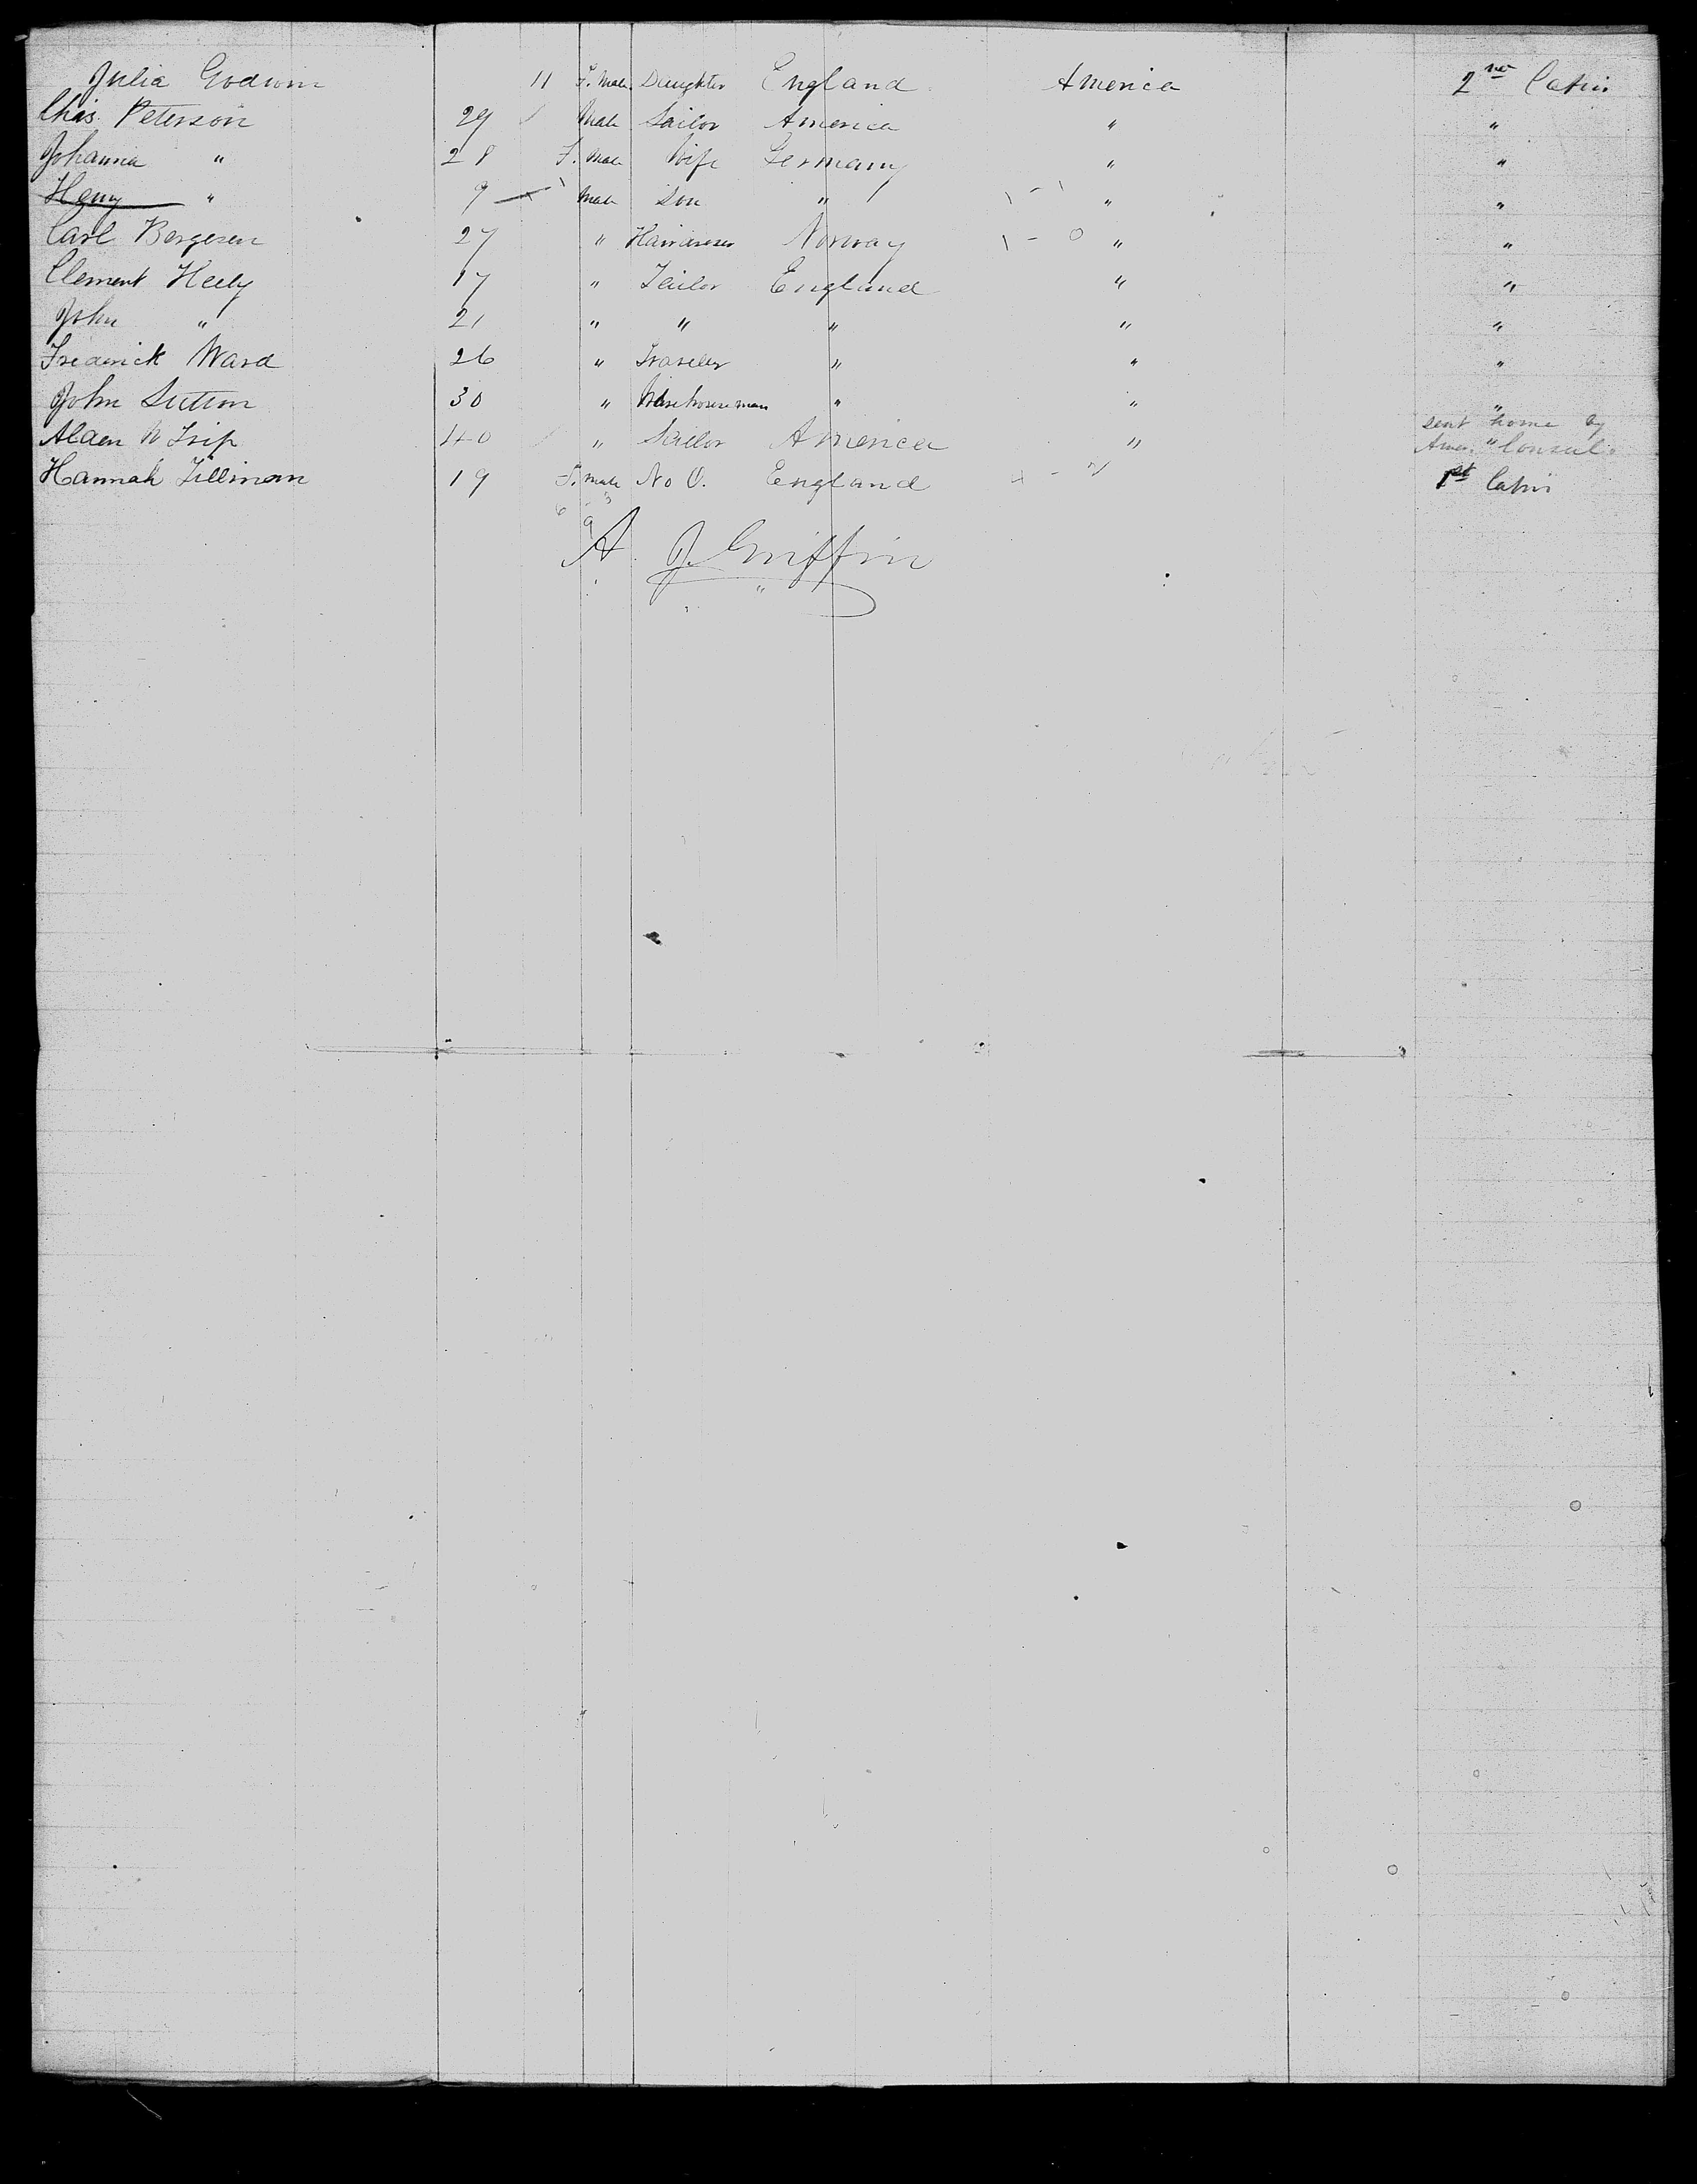 Julia Godwin 11 F. Male Daughter England America 2nd Cabin
Chas. Peterson 29 Male Sailor America " "
Johanna " 28 F. Male Wife Germany " "
Henry " 9 Male Son " " "
Carl Bergesen 27 " Hairdresser Norway " "
Clement Heely 17 " Tailor England " "
John " 21 " " " " "
Frederick Ward 26 " Traveler " " "
John Sutton 30 " Warehouseman " " "
Alden W Trip 40 " Sailor America " sent home by
Amer. " Consul.
Hannah Tillman 19 F. male No O. England 1st Cabin
A. J. Griffin